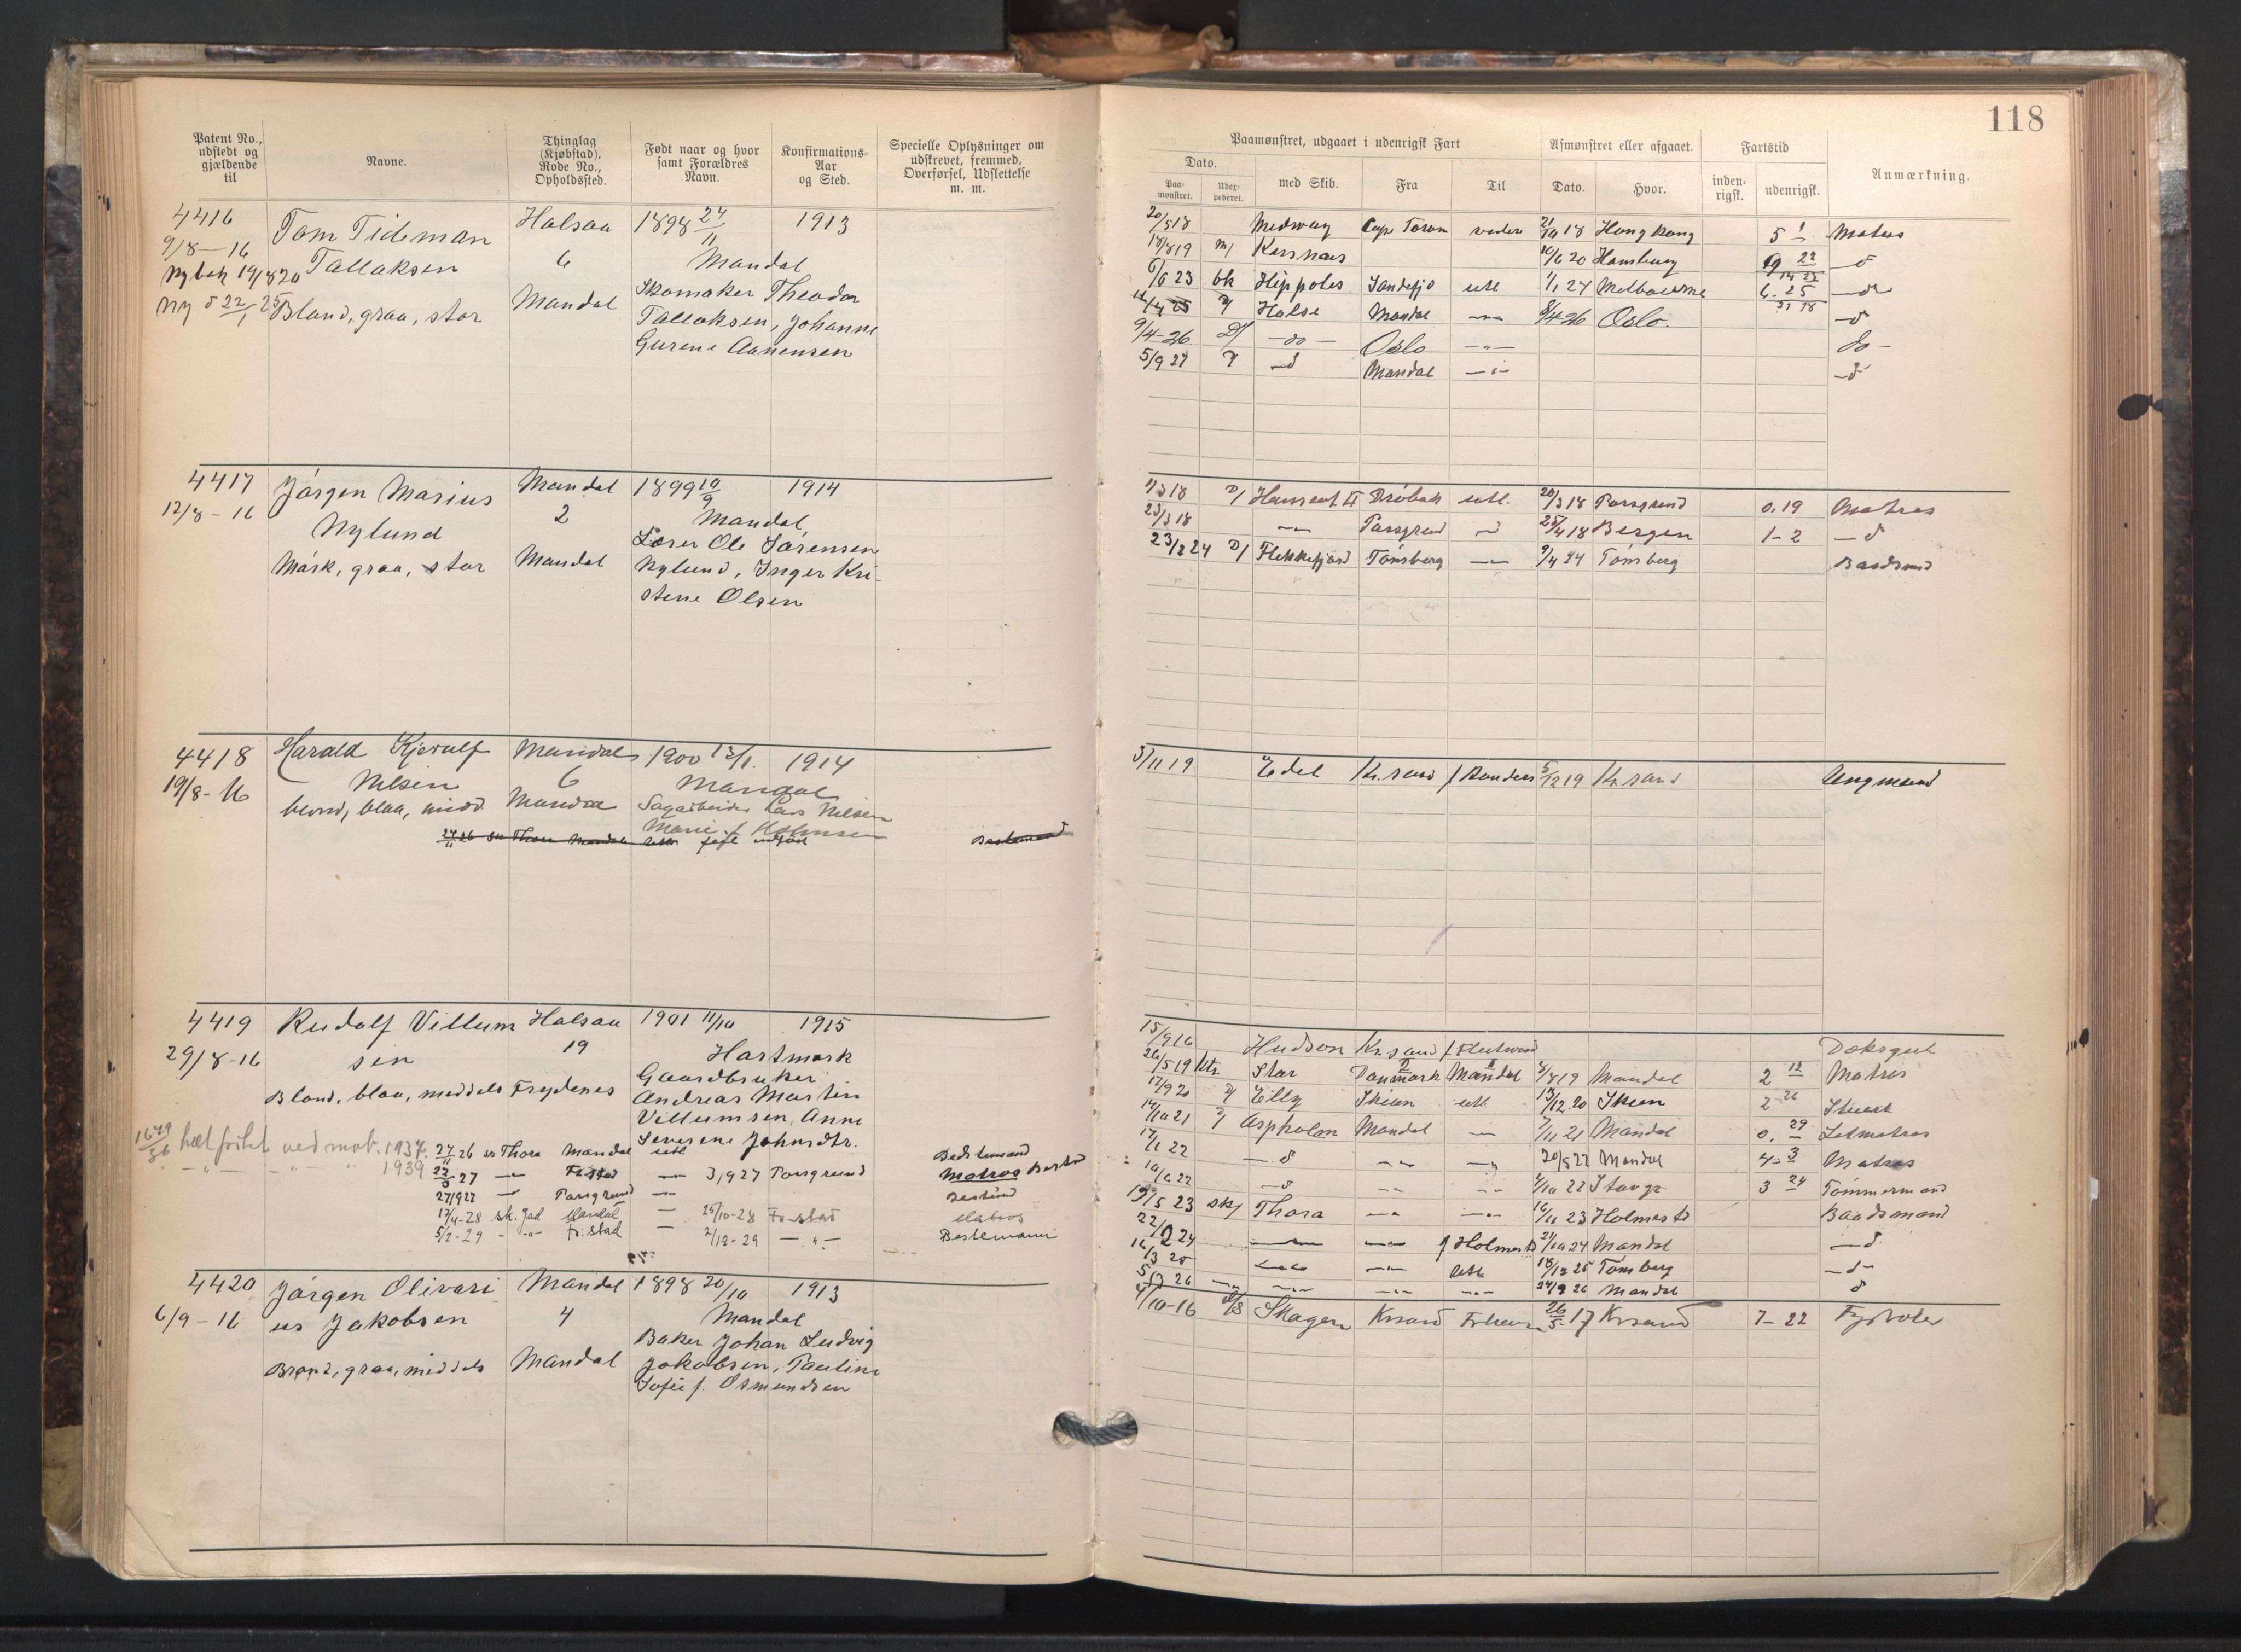 118
Patent No., udstedt og gjældende til
Navne.
Thinglag (Kjøbstad), Rode No., Opholdssted.
Født naar og hvor samt Forældres Navn.
Konfirmations-Aar og Sted.
Specielle Oplysninger om udskrevet, fremmed, Overførsel, Udslettelse m. m.
Paamønstret, udgaaet i udenrigsk Fart
Afmønstret eller afgaaet.
Fartstid
Anmærkning.
Dato.
med Skib.
Fra
Til
Dato.
Hvor.
inden-rigsk.
udenrigsk.
Paa-mønstret.
Uder-pederet.
4416 Tom Tideman Halsaa 1898 24/11 1913
9/8-16 Tallaksen 6 Mandal
Blond, graa, stor Mandal Skomaker Theodor
Tallaksen, Johanne
Gurene Aanensen
20/5 18 Medway
21/10 18 Hong kong 5 1 Matros
18/8 19 m/ 10/6 20 Hamburg 9 22 – d
6/6 23 bk Sandefjo utl 1/1 24 Melbourne 6. 25 – d
Halse Mandal – 8/4-26 Oslo. – d
9/4-26. D/ – do – Oslo – " – do –
5/9 27 D/ – d Mandal – " – – d
4417 Jørgen Marius Mandal 1899 10/9 1914
12/8-16 Nylund 2 Mandal
Mørk, graa, stor Mandal Lærer Ole Sørensen
Nylund, Inger Kri-
stene Olsen
D/ Drøbak utl. 20/3 18 Porsgrund 0.19 Matros
23/3 18 – " – Porsgrund – " 25/4 18 Bergen 1-2 – d
23/2 24 D/ Flekkefjord Tønsberg – " – 9/4 24 Tønsberg Baadsmd
4418 Harald Kjerulf Mandal 1900 13/1. 1914
19/8-16 Nilsen 6 Mandal
blond, blaa, midd. Mandal Sagarbeider Lars Nilsen
Marie f. Holmsen
24/11 26 Thora Mandal utl. fejl indført Bestemand
3/11 19 Edel Kr.sand f Randers 5/12 19 Kr.sand Ungmand
4419 Rudolf Villum Halsaa 1901 11/10 1915
29/8-16 sen 19 Hartmark
Blond, blaa, middels Frydenes Gaardbruker
Andreas Martin
Villumsen, Anne
Severene Johnsdtr.
ved mob. 1937.
1939
27/11 26 Thora Mandal utl Bedstemand
27 – " – – 3/9 27 Porsgrund Matros
27/9 27 – " Porsgrund – " Bestmd
17/4-28 sk. Gad Mandal – 25/10-28 Fr.stad Matros
5/2-29 - " - Fr.stad – 2/12-29 – " – Bestemann
15/9 16 Hudson Kr.sand f Fleetwood Dæksgut
26/5 19 Star Danmark Mandal 4/8 19 Mandal 2 12 Matros
17/9 20 D/ Eilly Skien utl 13/12 20 Skien 2 26
14/10 21 Aspholm Mandal – 7/11 21 Mandal 0. 29 Letmatros
– d – " – – " 20/5 22 Mandal 4-3 Matros
10/6 22 – d – " – – 22 3 24 Tømmermand
19/5 23 sk/ Thora – " – – " – 16/11 23 Holmest Baadsmand
22/2 24 – " – – " – f Holmest 21/10 24 Mandal – d
16/3 25 – " – – " – utl 18/12 25 Tønsberg – d –
5/3 26 – " – – " – – " – 24/9 26 Mandal d
4420 Jørgen Olivari Mandal 1898 20/10 1913
6/9-16 us Jakobsen 4 Mandal
Brond, graa, middels Mandal Baker Johan Ludvig
Jakobsen, Pauline
Sofie f. Osmundsen
4/10-16 D/S Skagen Krsand 26/5-17 Krsand 7-22 Fyrbøter